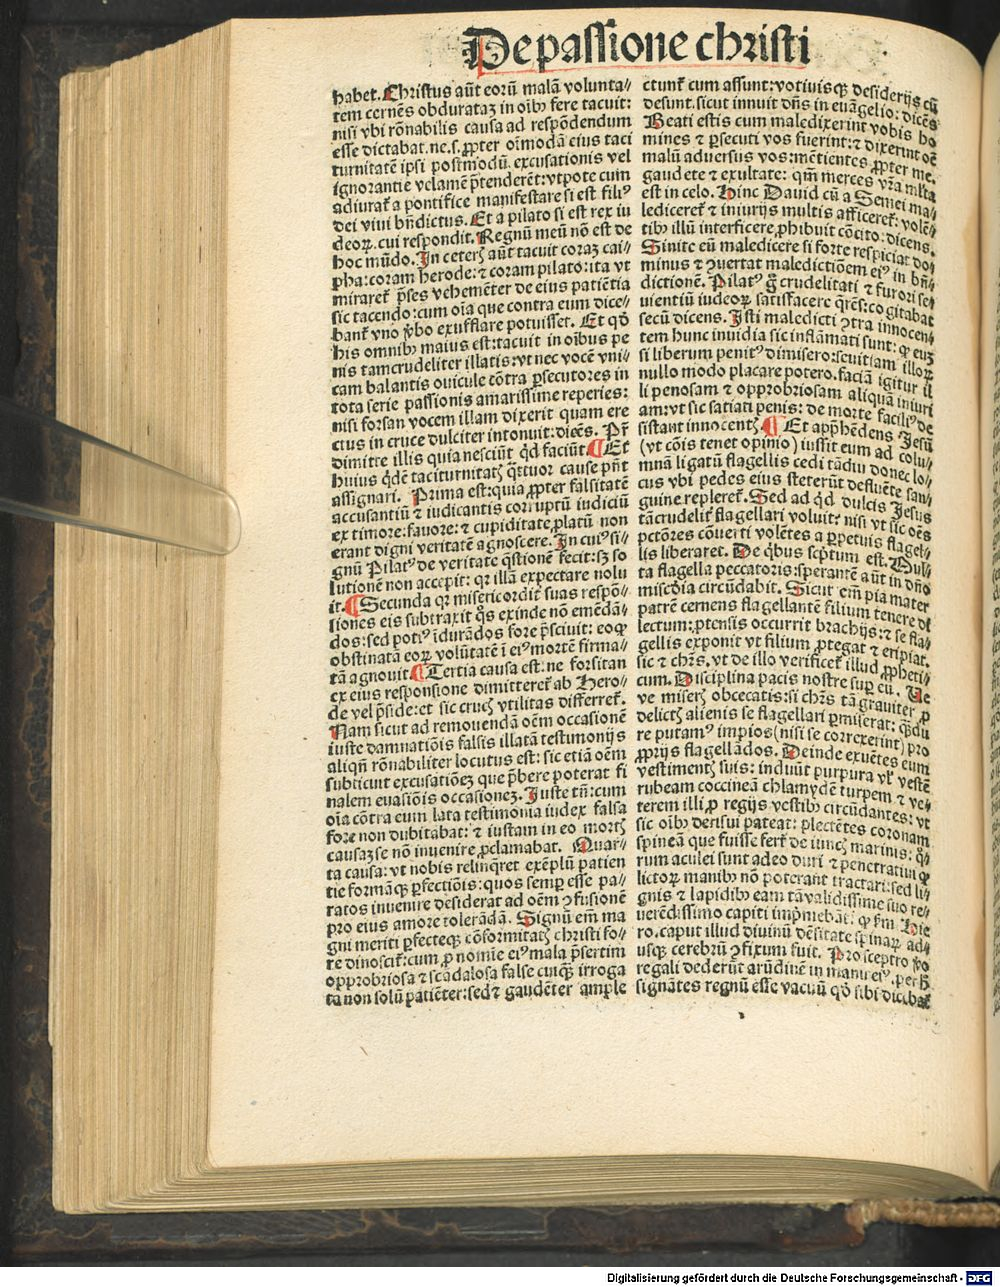 De passione christi
habet. Christus aūt eorū malā volunta⸗
tem cernēs obdurataꝫ in oībꝰ fere tacuit:
nisi vbi rōnabilis causa ad respōdendum
esse dictabat. ne.s. ꝓpter oīmodā eius taci
turnitatē ipsi postmodū excusationis vel
ignorantie velamē p̄tenderēt: vtpote cum
adiurat᷑ a pontifice manifestare si est filiꝰ
dei viui bn̄dictus. Et a pilato si est rex iu
deoꝝ. cui respondit. Regnū meū nō est de
hoc mūdo. In ceterꝭ aūt tacuit coraꝫ cai⸗
pha: coram herode: ⁊ coram pilato: ita vt
miraret᷑ p̄ses vehemēter de eius patiētia
sic tacendo: cum oīa que contra eum dice⸗
bant᷑ vno ꝟbo exufflare potuisset. Et qd̄
his omnibꝰ maius est: tacuit in oībus pe
nis tam crudeliter illatis: vt nec vocē vni⸗
cam balantis ouicule cōtra ꝑsecutores in
tota serie passionis amarissime reperies:
nisi forsan vocem illam dixerit quam ere
ctus in cruce dulciter intonuit: dicēs. Pr̄
dimitte illis quia nesciūt qd̄ faciūt. ¶ Et
huius q̇dē taciturnitatꝭ q̄ttuor cause pn̄t
assignari. Prima est: quia ꝓpter falsitatē
accusantiū ⁊ iudicantis corruptū iudiciū
ex timore: fauore: ⁊ cupiditate ꝓlatū non
erant digni veritatē agnoscere. In cuiꝰ si⸗
gnū Pilatꝰ de veritate q̄stionē fecit: sꝫ so
lutionē non accepit: qꝛ illā expectare nolu
it. ¶ Secunda qꝛ misericordit᷑ suas respō⸗
siones eis subtraxit q̊s exinde nō emēdā⸗
dos: sed potiꝰ īdurādos fore p̄sciuit: eo ꝙ
obstinatā eoꝝ volūtatē ī eiꝰ mortē firma⸗
tā agnouit. ¶ Tertia causa est: ne forsitan
ex eius responsione dimitteret᷑ ab Hero⸗
de vel p̄side: et sic crucꝭ vtilitas differret᷑.
Nam sicut ad remouendā oēm occasionē
iuste damnatiōis falsis illatā testimonijs
aliqn̄ rōnabiliter locutus est: sic etiā oēm
subticuit excusatiōeꝫ que p̄bere poterat fi
nalem euasiōis occasioneꝫ. Iuste tn̄: cum
oīa cōtra eum lata testimonia iudex falsa
fore non dubitabat: ⁊ iustam in eo mortꝭ
causaꝫ se nō inuenire ꝓclamabat. Quar⸗
ta causa: vt nobis relinq̄ret exēplū patien
tie formāqꝫ ꝑfectiōis: quos semꝑ esse pa⸗
ratos inuenire desiderat ad oēm ꝯfusionē
pro eius amore tolerādā. Signū em̄ ma
gni meriti ꝑfecteqꝫ cōformitatꝭ christi fo⸗
re dinoscit᷑: cum ꝓ nomīe eiꝰ mala p̄sertim
opprobriosa ⁊ scādalosa false cuiqꝫ irroga
ta non solū patiēter: sed ⁊ gaudēter ample
ctunt᷑ cum assunt: votiuisqꝫ desiderijs cū
desunt. sicut innuit dn̄s in euāgelio: dicēs
Beati estis cum maledixerint vobis ho
mines ⁊ ꝑsecuti vos fuerint: ⁊ dixerint oē
malū aduersus vos: mētientes ꝓpter me.
gaudete ⁊ exultate: qm̄ merces vr̄a mlta
est in celo. Hinc Dauid cū a Semei ma⸗
lediceret᷑ ⁊ iniurijs multis afficeret᷑: volē⸗
tibꝰ illū interficere ꝓhibuit cōcito: dicens.
Sinite eū maledicere si forte respiciat do⸗
minus ⁊ ꝯuertat maledictiōem eiꝰ in bn̄⸗
dictionē. Pilatꝰ g̊ crudelitati ⁊ furori se⸗
uientiū iudeoꝝ satisfacere q̄rēs: cogitabat
secū dicens. Isti maledicti ꝯtra innocen⸗
tem hunc inuidia sic inflāmati sunt: ꝙ euꝫ
si liberum penitꝰ dimisero: seuitiam illoꝝ
nullo modo placare potero. faciā igitur il
li penosam ⁊ opprobriosam aliquā iniuri
am: vt sic satiati penis: de morte faciliꝰ de
sistant innocentꝭ. ¶ Et app̄hēdens Jesū
(vt cōis tenet opinio) iussit eum ad colu⸗
mnā ligatū flagellis cedi tādiu donec lo⸗
cus vbi pedes eius steterūt defluēte san⸗
guine repleret᷑. Sed ad qd̄ dulcis Jesus
tā crudelit᷑ flagellari voluit: nisi vt sic oēs
pctōres cōuerti volētes a ꝑpetuis flagel⸗
lis liberaret. De q̇bus sc̄ptum est. Mul⸗
ta flagella peccatoris: sperantē aūt in dn̄o
misc̄dia circūdabit. Sicut em̄ pia mater
patrē cernens flagellantē filium tenere di
lectum: ꝓtensis occurrit brachijs: ⁊ se fla⸗
gellis exponit vt filium ꝓtegat ⁊ eripiat.
sic ⁊ chr̄s. vt de illo verificet᷑ illud ꝓpheti⸗
cum. Disciplina pacis nostre suꝑ eū. Ve
ve miserꝭ obcecatis: si chr̄s tā grauiter ꝓ
delictꝭ alienis se flagellari ꝑmiserat: q̄ꝫdu
re putamꝰ impios (nisi se correxerint) pro
ꝓprijs flagellādos. Deinde exuētes eum
vestimentꝭ suis: induūt purpura vl᷑ vestē
rubeam coccineā chlamydē turpem ⁊ ve⸗
terem illi ꝓ regijs vestibꝰ circūdantes: vt
sic oībꝰ derisui pateat: plectētes coronam
spineā que fuisse fert᷑ de iuncꝭ marinis: q̊⸗
rum aculei sunt adeo duri ⁊ penetratiui ꝙ
lictoꝝ manibꝰ nō poterant tractari: sed li⸗
gnis ⁊ lapidibꝰ eam tā validissime suo re⸗
uerēdissimo capiti imp̄mebāt: ꝙ fm̄ Hie
ro. caput illud diuinū dēsitate spinaꝝ ad⸗
usqꝫ cerebrū ꝯfixum fuit. Pro sceptro ꝟo
regali dederūt arūdinē in manu eiꝰ. per ħ
signātes regnū esse vacuū qd̄ sibi dicebat᷑
Digitalisierung gefördert durch die Deutsche Forschungsgemeinschaft - DFG